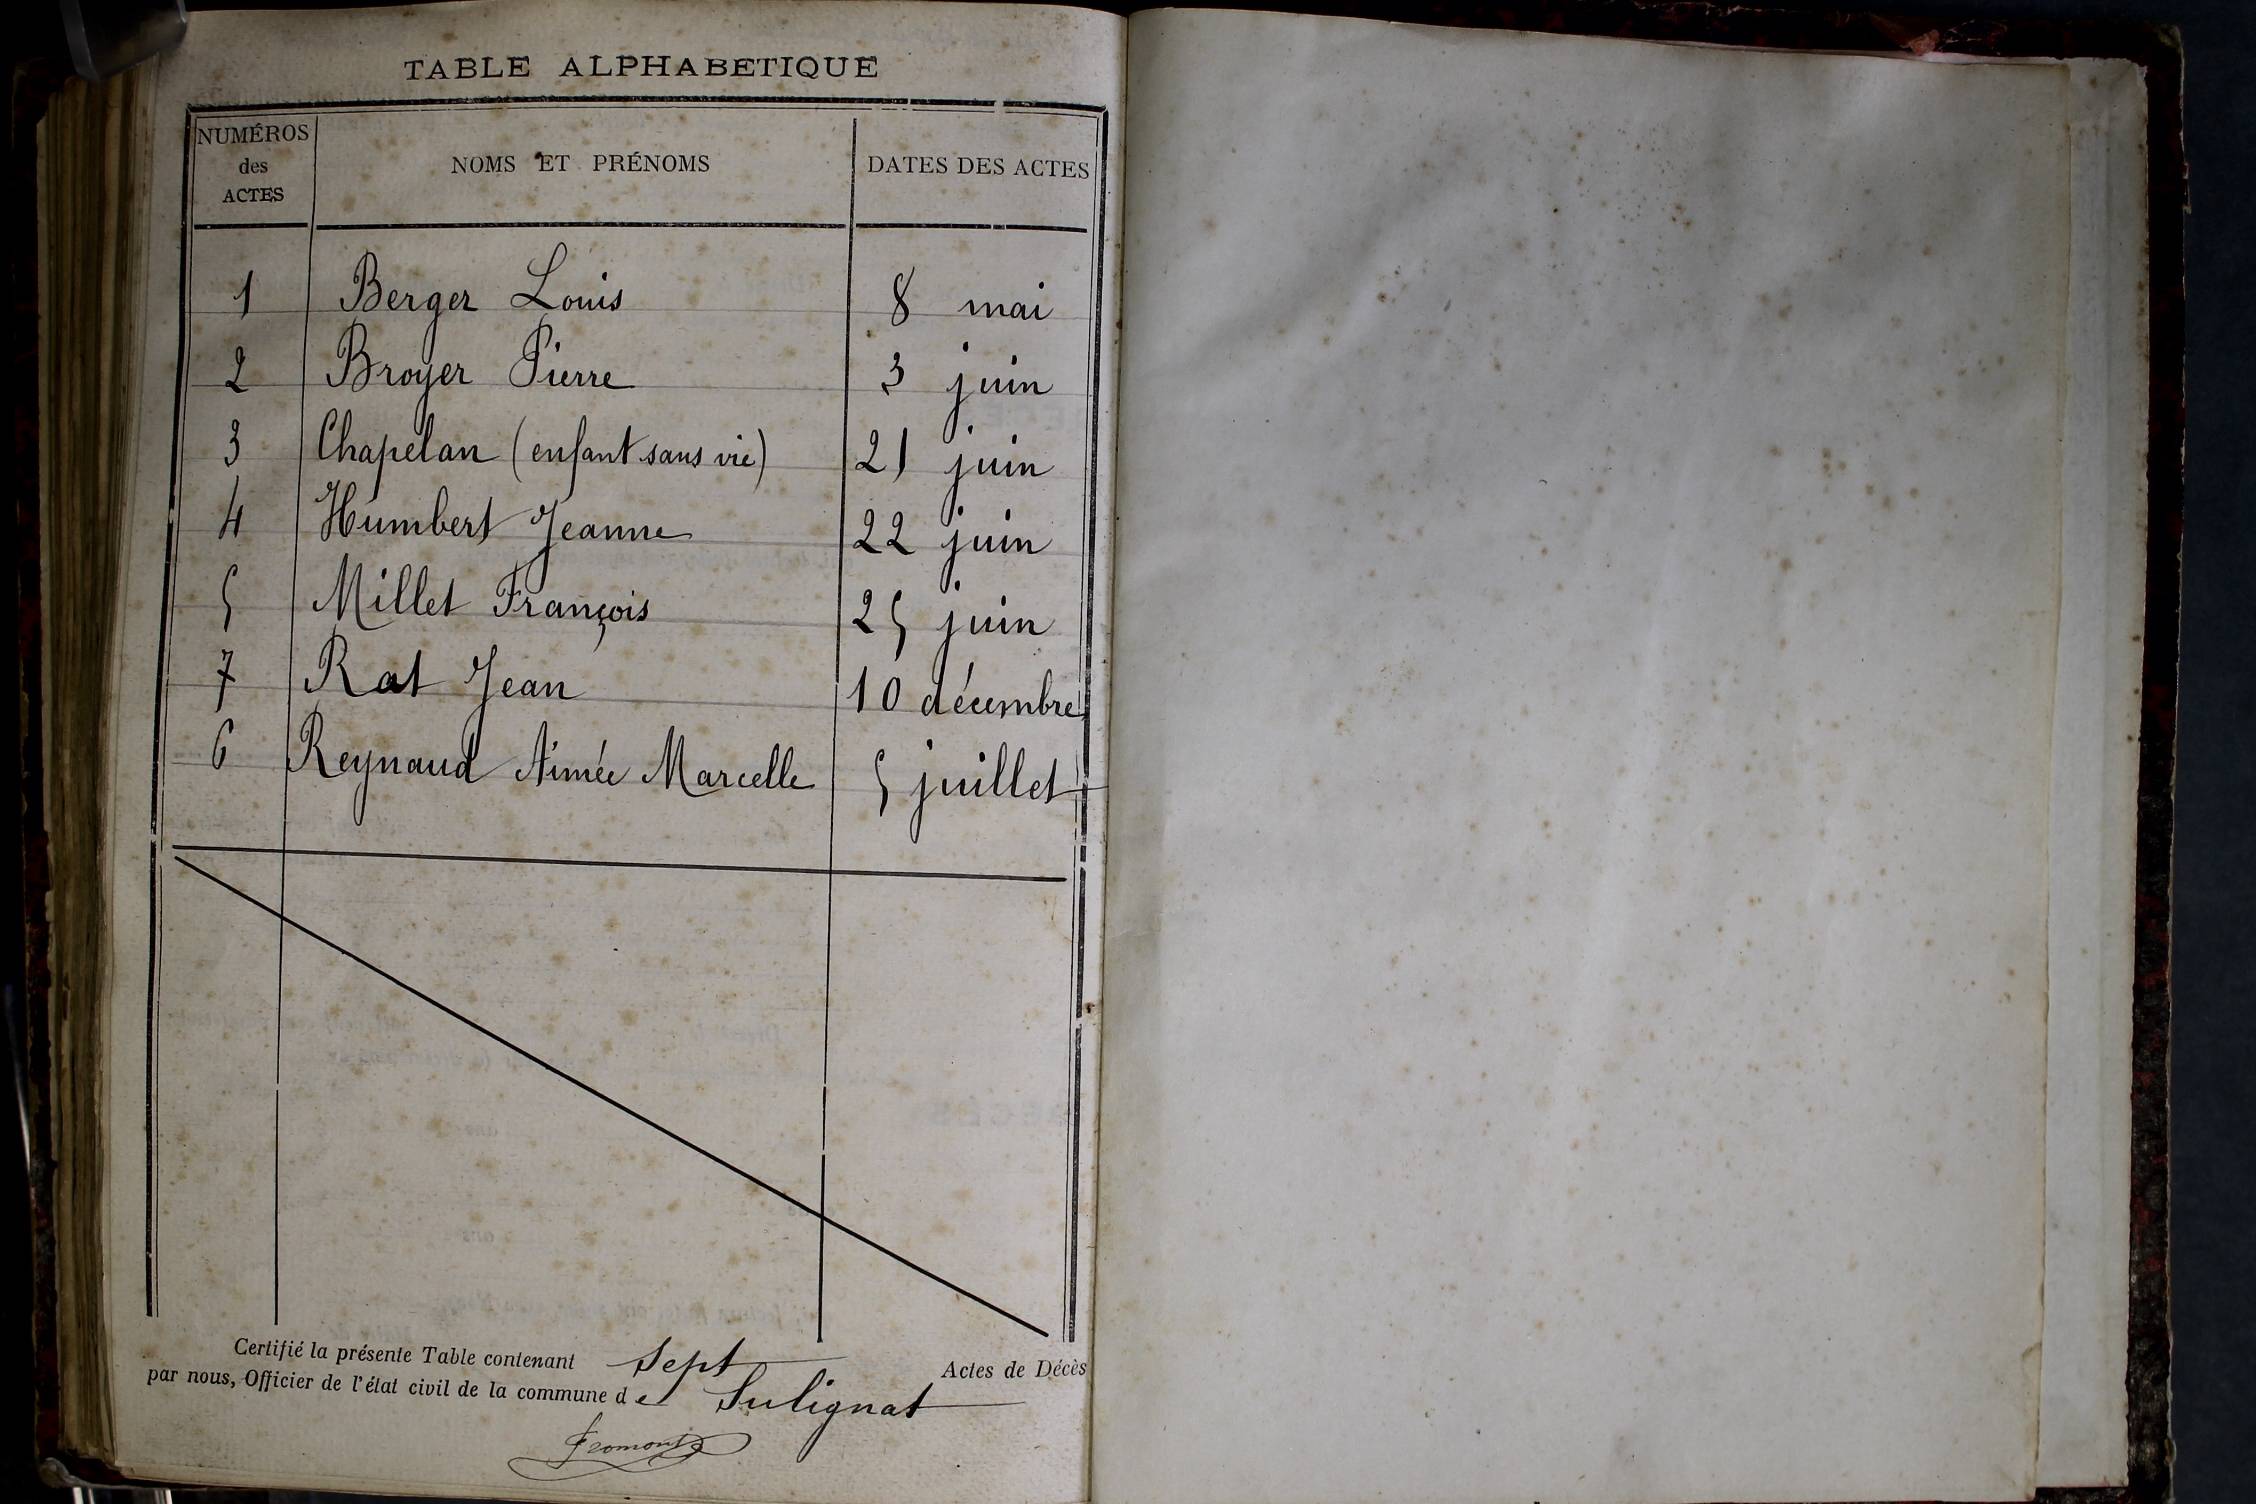 TABLE ALPHABETIQUE
NUMÉROS des ACTES NOMS ET PRÉNOMS DATES DES ACTES
1 Berger Louis 8 mai
2 Broyer Pierre 3 juin
3 Chapelan (enfant sans vie) 21 juin
4 Humbert Jeanne 22 juin
5 Millet François 25 juin
7 Rat Jean 10 décembre
6 Reynaud Aimée Marcelle 5 juillet
Certifié la présente Table contenant sept Actes de Décès
par nous, Officier de l'état civil de la commune de Sulignat
Fromont